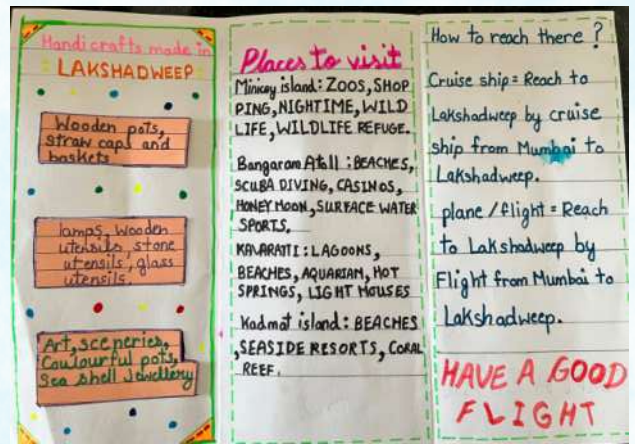 Handicrafts made in
LAKSHADWEEP
Wooden pots,
straw caps and
baskets
lamps, wooden
utensils, stone
utensils, glass
utensils.
Art, sceneries,
Coulourful pots,
Sea shell Jewellery
Places to visit
Minicoy island: ZOOS, SHOP
PING, NIGHTIME, WILD
LIFE, WILDLIFE REFUGE.
Bangaram Atoll: BEACHES,
SCUBA DIVING, CASINOS,
HONEY MOON, SURFACE WATER
SPORTS.
KAVARATTI: LAGOONS,
BEACHES, AQUARIAN, HOT
SPRINGS, LIGHT HOUSES
Kadmat island: BEACHES
, SEASIDE RESORTS, CORAL
REEF.
How to reach there?
Cruise ship = Reach to
Lakshadweep by cruise
ship from Mumbai to
Lakshadweep.
plane/flight = Reach
to Lakshadweep by
Flight from Mumbai to
Lakshadweep.
HAVE A GOOD
FLIGHT